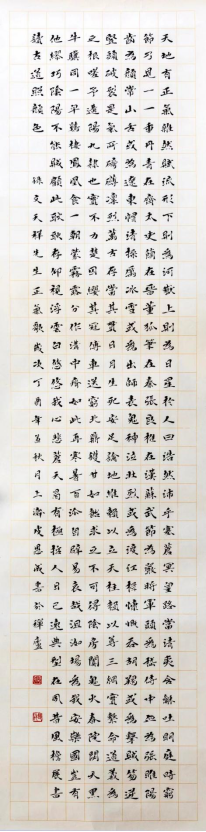 天地有正氣雜然賦流形下則為河嶽上則為日星於人曰浩然沛乎塞蒼冥皇路當清夷含和吐明庭時窮
節乃見一一垂丹青在齊太史簡在晉董狐筆在秦張良椎在漢蘇武節為嚴將軍頭為嵇侍中血為張睢陽
齒為顏常山舌或為遼東帽清操厲冰雪或為出師表鬼神泣壯烈或為渡江楫慷慨吞胡羯或為擊賊笏逆
豎頭破裂是氣所磅礴凜烈萬古存當其貫日月生死安足論地維賴以立天柱賴以尊三綱實繫命道義為
之根嗟予遘陽九隸也實不力楚囚纓其冠傳車送窮北鼎鑊甘如飴求之不可得陰房闃鬼火春院閟天黑
牛驥同一皁雞棲鳳凰食一朝蒙霧露分作溝中瘠如此再寒暑百沴自辟易哀哉沮洳場為我安樂國豈有
他繆巧陰陽不能賊顧此耿耿存仰視浮雲白悠悠我心悲蒼天曷有極哲人日已遠典型在夙昔風檐展書
讀古道照顏色 錄文天祥先生正氣歌歲次丁酉年孟秋月上浣皮恩成書於禪盧